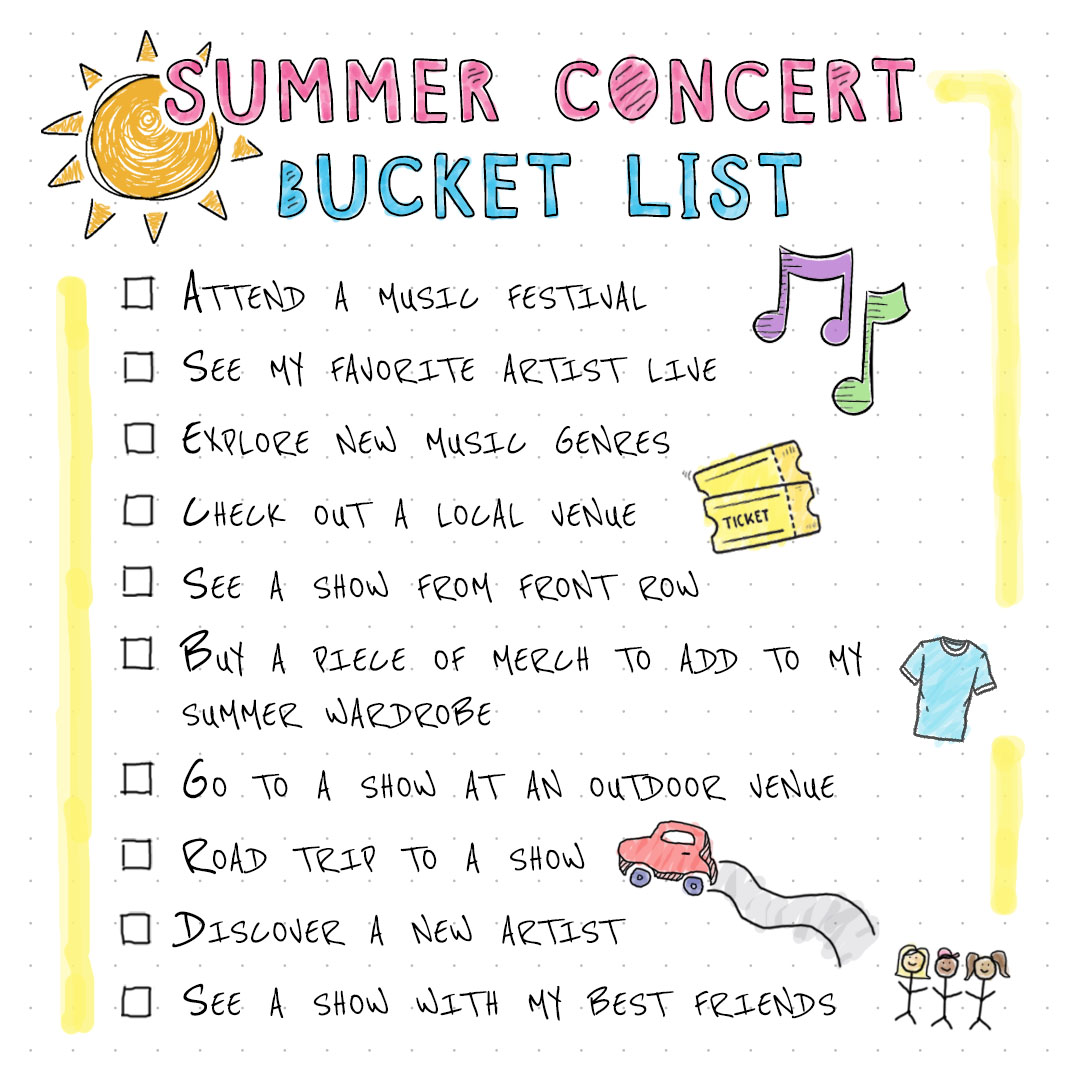 SUMMER CONCERT
BUCKET LIST
ATTEND A MUSIC FESTIVAL
SEE MY FAVORITE ARTIST LIVE
EXPLORE NEW MUSIC GENRES
CHECK OUT A LOCAL VENUE
TICKET
SEE A SHOW FROM FRONT ROW
BUY A PIECE OF MERCH TO ADD TO MY
SUMMER WARDROBE
GO TO A SHOW AT AN OUTDOOR VENUE
ROAD TRIP TO A SHOW
DISCOVER A NEW ARTIST
SEE A SHOW WITH MY BEST FRIENDS